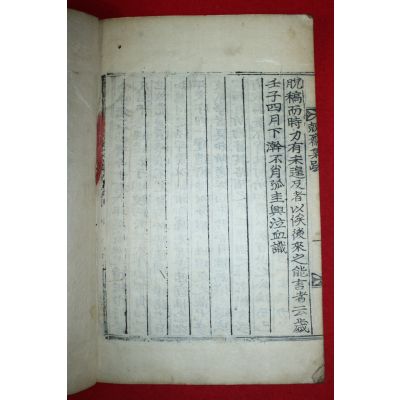 脫稿而時力有未遑及者以俟後來之能言者云歲
壬子四月下澣不肖孤圭興泣血識